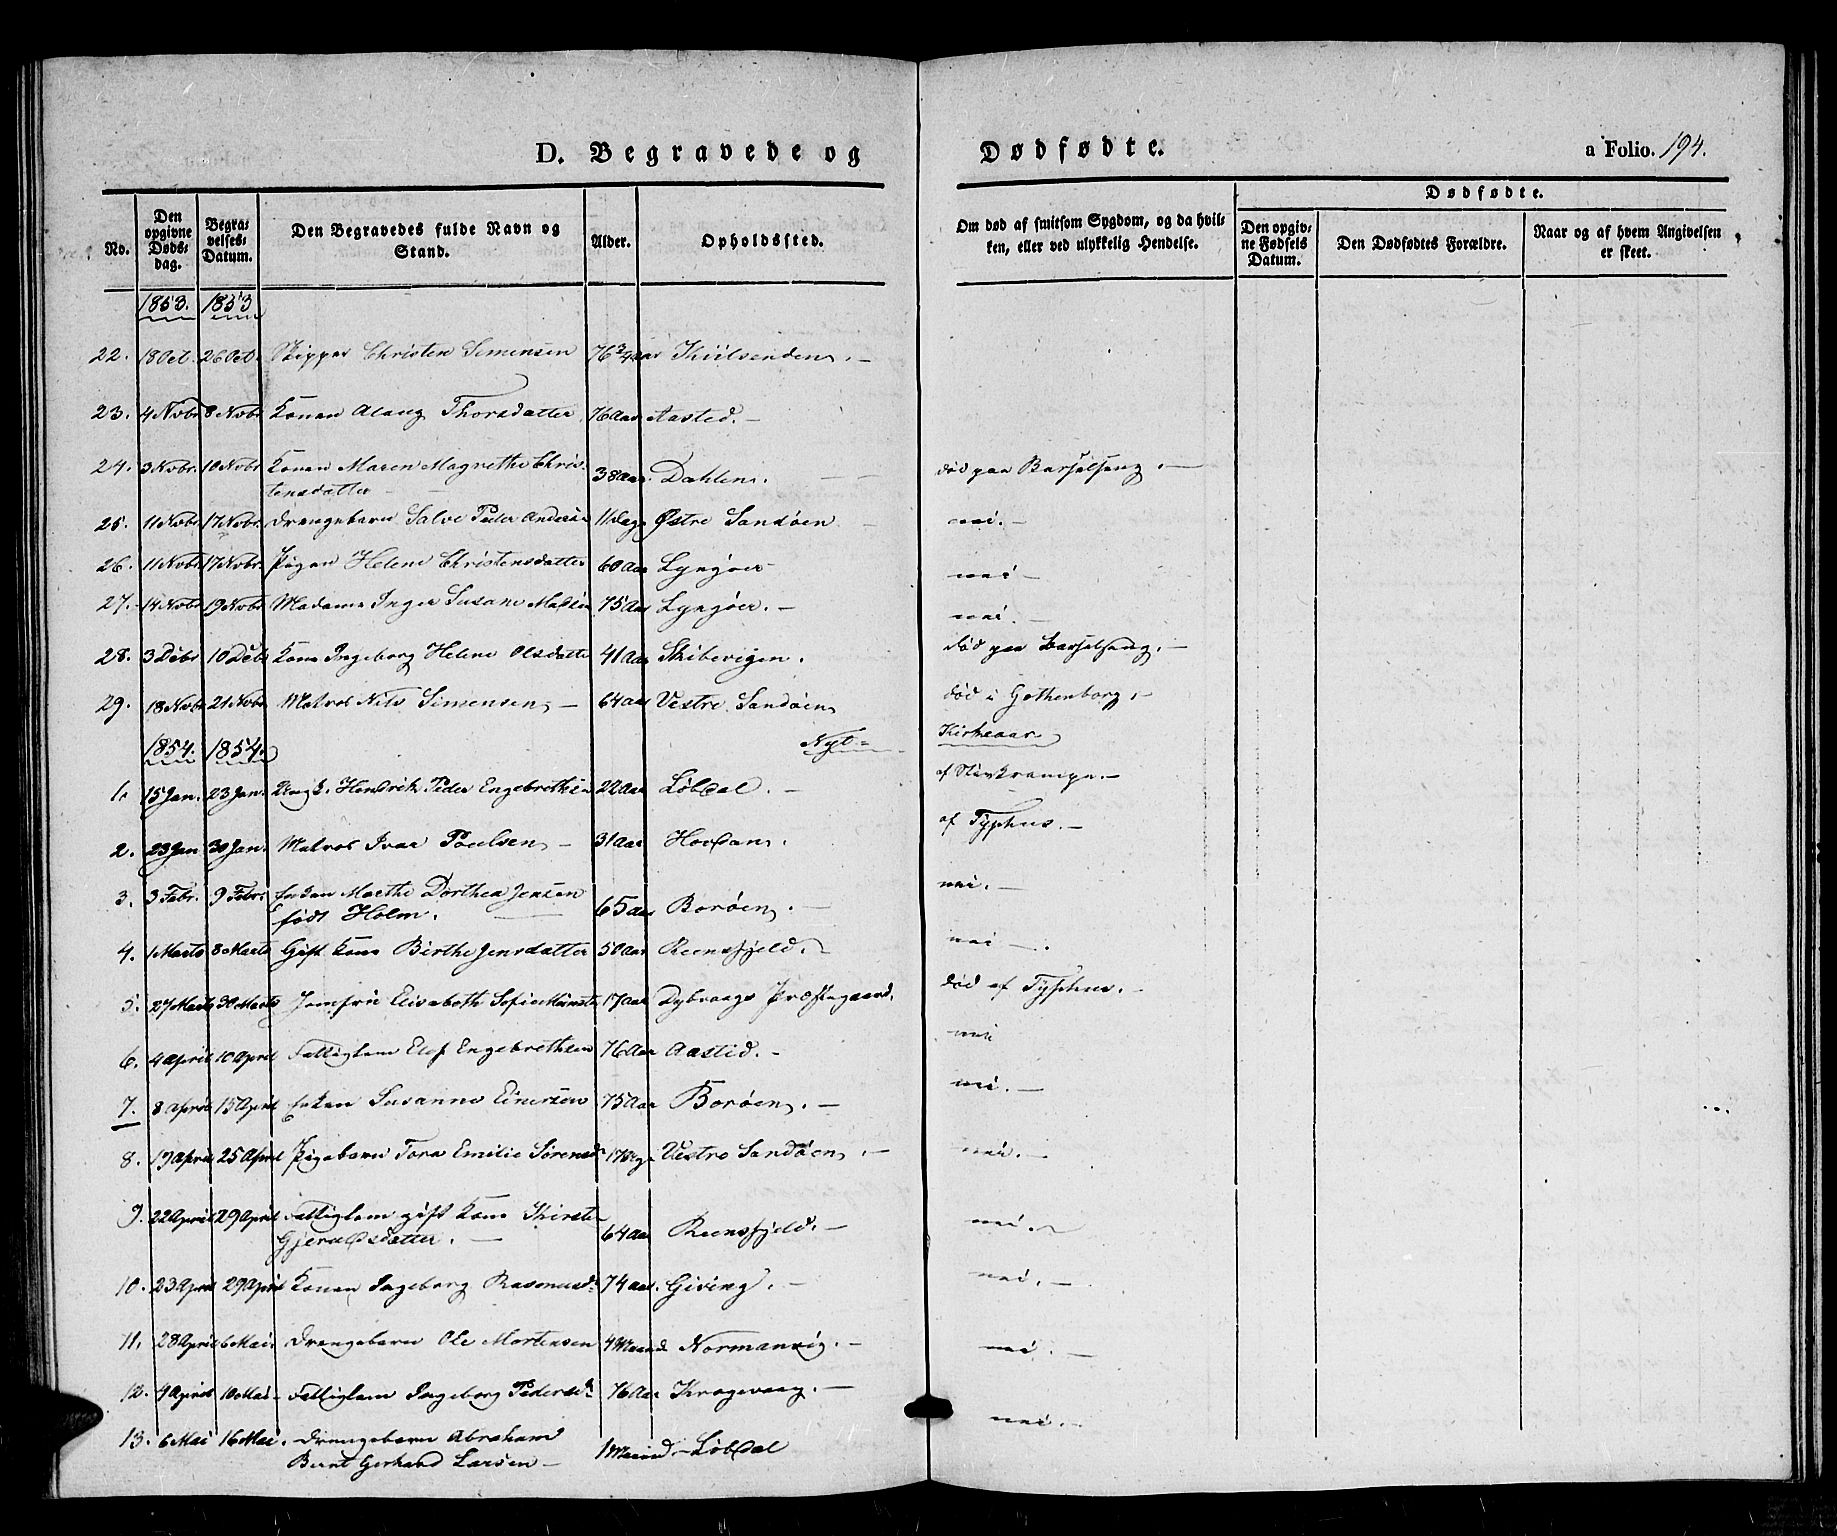 D. Begravede og Dødfødte. a Folio. 194.
No. Den opgivne Døds-dag. Begra-velses-Datum. Den Begravedes fulde Navn og Stand. Alder. Opholdssted. Om død af smitsom Sygdom, og da hvil-ken, eller ved ulykkelig Hendelse. Dødfødte. Den opgiv-ne Fødsels Datum. Den Dødfødtes Forældre. Naar og af hvem Angivelsen er skeet.
1853. 1853
22. 18 Oct. 26 Oct. Skipper Christen Simensen 76 3/4 aar Kiilsenden.
23. 4 Nvbr 8 Nvbr. Konen Alaug Thorsdatter 76 Aar Aasted.
24. 3 Nvbr. 10 Nvbr Konen Maren Magrethe Chris-
tensdatter 38 Aar. Dahlen. død paa Barselseng.
25. 11 Nvbr. 17 Nvbr. Drengebarn Salve Peder Andersen 11 Dage Østre Sandøen nei.
26. 11 Nvbr. 17 Nvbr. Pigen Helene Christensdatter 60 Aar Lyngøer nei
27. 14 Nvbr 19 Nvbr. Madame Inger Susane Madsen 75 Aar Lyngøer. nei.
28. 3 Debr 10 Debr Kone Ingeborg Helene Olsdatter 41 Aar Skibevigen. død paa Barselseng.
29. 18 Nvbr 21 Nvbr Matros Nils Simensen 64 aar Vestre Sandøen død i Gothenborg.
1854. 1854. Nyt Kirkeaar
1. 15 Jan. 23 Jan. Ungk. Hendrik Peder Engebrethsen 22 Aar Løbdal. af Stivkrampe.
2. 23 Jan 30 Jan. Matros Ivar Poulsen 31 Aar Hovdan. af Typhus.
3. 3 Febr. 9 Febr. Enken Maethe Dorthea Jensen
født Holm. 65 aar Borøen. nei.
4. 1 Marts 8 Marts Gift Kone Birthe Jensdatter 50 Aar Reensfjeld. nei
5. 27 Marts 30 Marts Jomfru Elisabeth Sofie Münster 17 Aar Dybvaags Præstegaard. død af Typhus.
6. 4 April 10 April Fattiglem Elef Engebrethsen 76 Aar Aastid. nei
7. 8 April 15 April Enken Susanne Einersen 75 Aar Borøen. nei.
8. 19 April 25 April Pigebarn Tora Emilie Sørensd. 17 Dage Vestre Sandøen. nei.
9. 22 April 29 April Fattiglem gift Kone Kirste
Gjeruldsdatter. 64 Aar Reensfjeld. nei.
10. 23 April 29 April Konen Ingeborg Rasmusd. 74 aar. Giving. nei.
11. 28 April 6 Mai. Drengebarn Ole Mortensen 4 Maaned Normansvig. nei.
12. 9 April 10 Mai Fattiglem Ingeborg Pedersd. 76 Aar Krogevaag.
13. 6 Mai 16 Mai. Drengebarn Abraham
Bernt Gerhard Larsen 1 Maaned Løbdal nei.